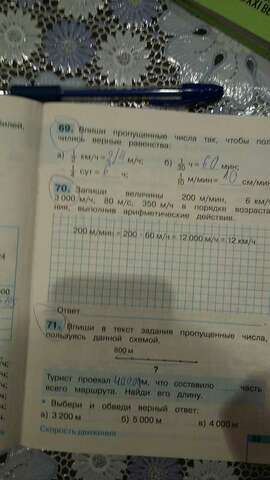 69. Впиши пропущенные числа так, чтобы пол
чились верные равенства:
а) 1/2 км/ч = м/ч; б) 1/10 ч = мин;
1/4 сут = 6 ч; 1/10 м/мин = 10 см/мин
70. Запиши величины 200 м/мин, 6 км/ч
3 000 м/ч, 80 м/с, 350 м/ч в порядке возраста
ния, выполнив арифметические действия.
200 м/мин = 200 · 60 м/ч = 12 000 м/ч = 12 км/ч
Ответ
71. Впиши в текст задания пропущенные числа,
пользуясь данной схемой.
800 м
?
Турист проехал м, что составило часть
всего маршрута. Найди его длину.
• Выбери и обведи верный ответ:
а) 3 200 м б) 5 000 м в) 4 000 м
Скорость движения